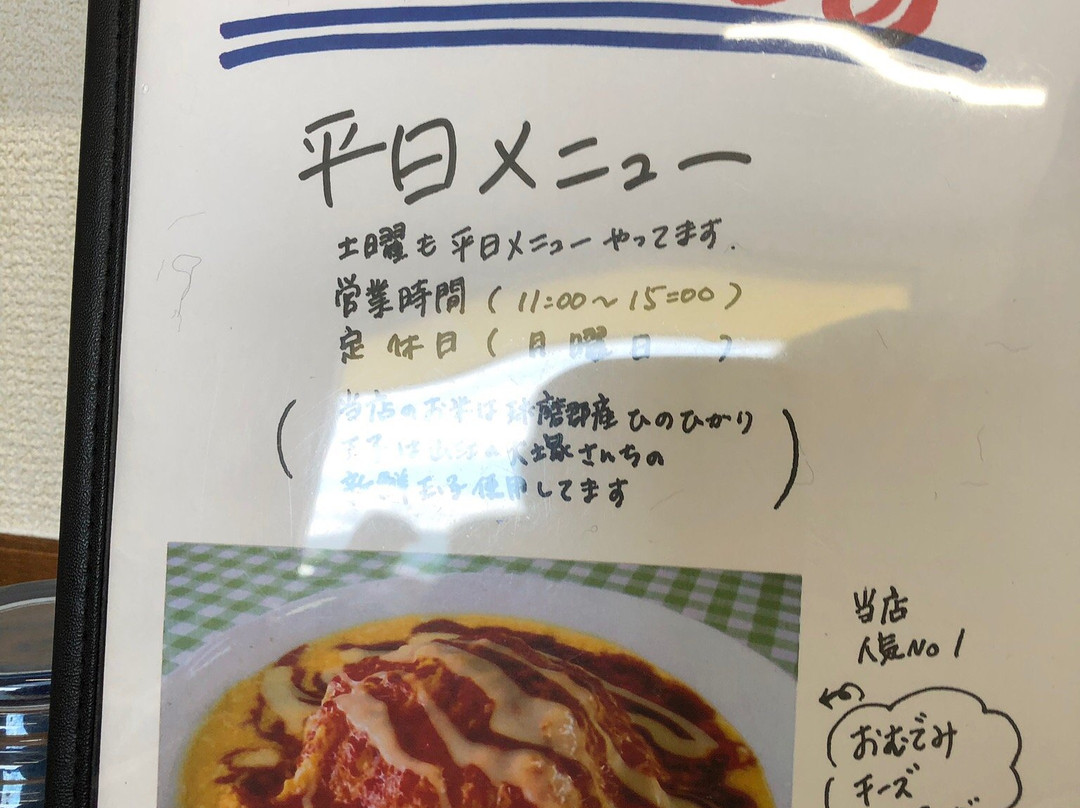 平日メニュー
土曜も平日メニューやってます.
営業時間 (11:00～15:00)
定休日 (月曜日)
(当店のお米は球磨郡産ひのひかり
大塚さんちの
新鮮玉子使用してます)
当店
人気No1
おむでみ
チーズ